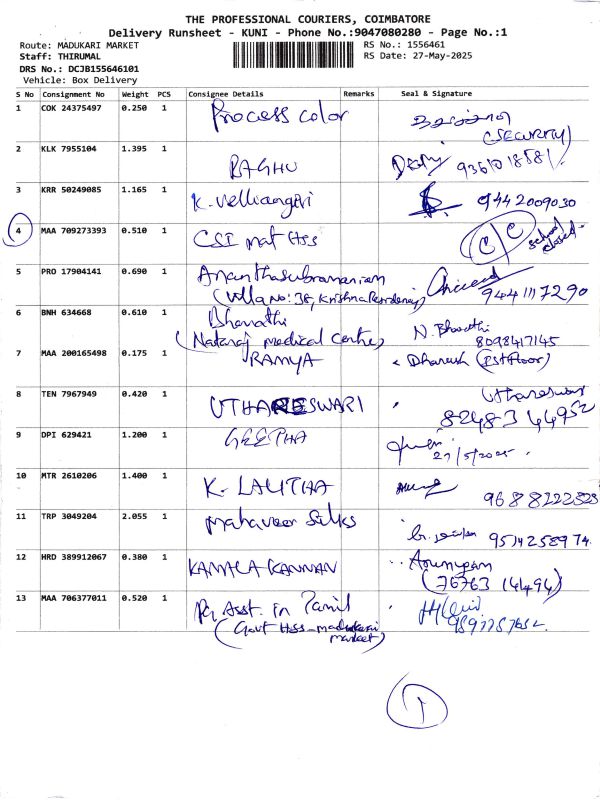 THE PROFESSIONAL COURIERS, COIMBATORE
Delivery Runsheet - KUNI - Phone No.:9047080280 - Page No.:1
Route: MADUKARI MARKET
RS No.: 1556461
Staff: THIRUMAL
RS Date: 27-May-2025
DRS No.: DCJB155646101
Vehicle: Box Delivery
S No Consignment No Weight PCS Consignee Details Remarks Seal & Signature
1 COK 24375497 0.250 1 Process color
(SECURITY)
2 KLK 7955104 1.395 1 RAGHU
3 KRR 50249085 1.165 1 K. velliangiri 9442009030
4 MAA 709273393 0.510 1 CSI mat Hss C C school closed.
5 PRO 17904141 0.690 1 Ananthasubramaniam
(Villa No: 38, Krishna Residency) 9441117290
6 BNH 634668 0.610 1 Bharathi N. Bharathi
(Nataraj medical centre) 8098417145
7 MAA 200165498 0.175 1 RAMYA Dharesh (Ist floor)
8 TEN 7967949 0.420 1 UTHARESWARI Uthareswar
82483 44952
9 DPI 629421 1.200 1 GEETHA
27/5/2025
10 MTR 2610206 1.400 1 K. LALITHA
9688222828
11 TRP 3049204 2.055 1 Mahaveer Silks
9514258974
12 HRD 389912067 0.380 1 KAMALA KANNAN Arumugam
(76763 14494)
13 MAA 706377011 0.520 1 PG Asst. in Tamil
(Govt Hss - madukarai market)
1